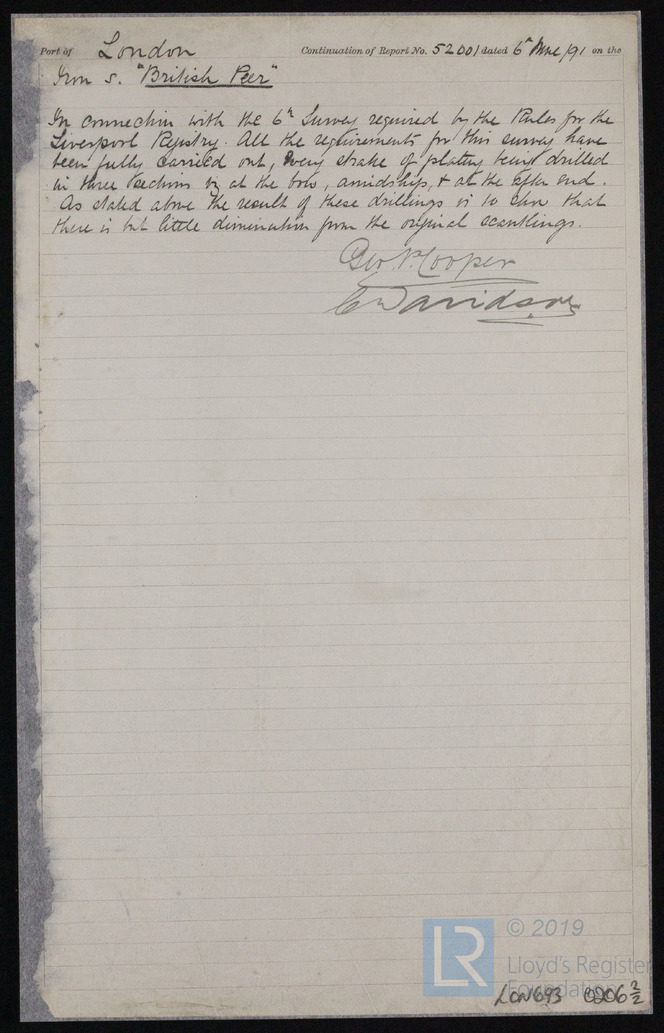 Port of London Continuation of Report No. 52001 dated 6th June/91 on the
Iron S. "British Peer"
In connection with the 6th Survey required by the Rules for the
Liverpool Registry. All the requirements for this survey have
been fully carried out, every strake of plating being drilled
in three sections viz at the bow, amidships, & at the after end.
As stated above the result of these drillings is to shew that
there is but little diminution from the original scantlings.
Geo. P. Cooper
C Davidson
© 2019
LR
Lloyd's Register
Foundation
LON693 0206 2/2